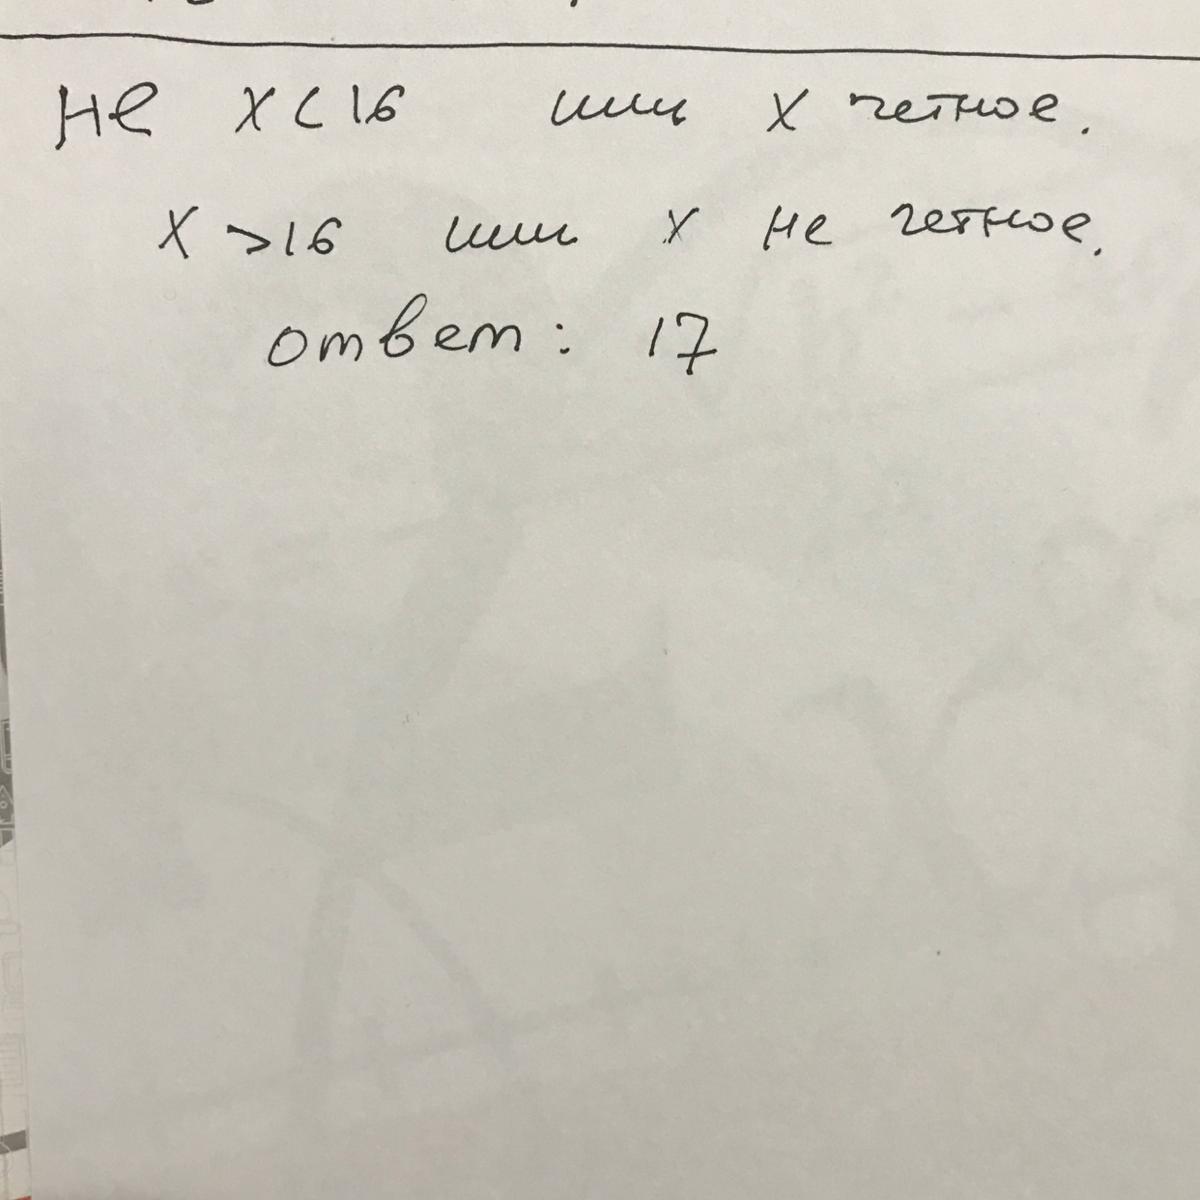 Не X < 16 или X четное.
X > 16 или X не четное.
ответ: 17